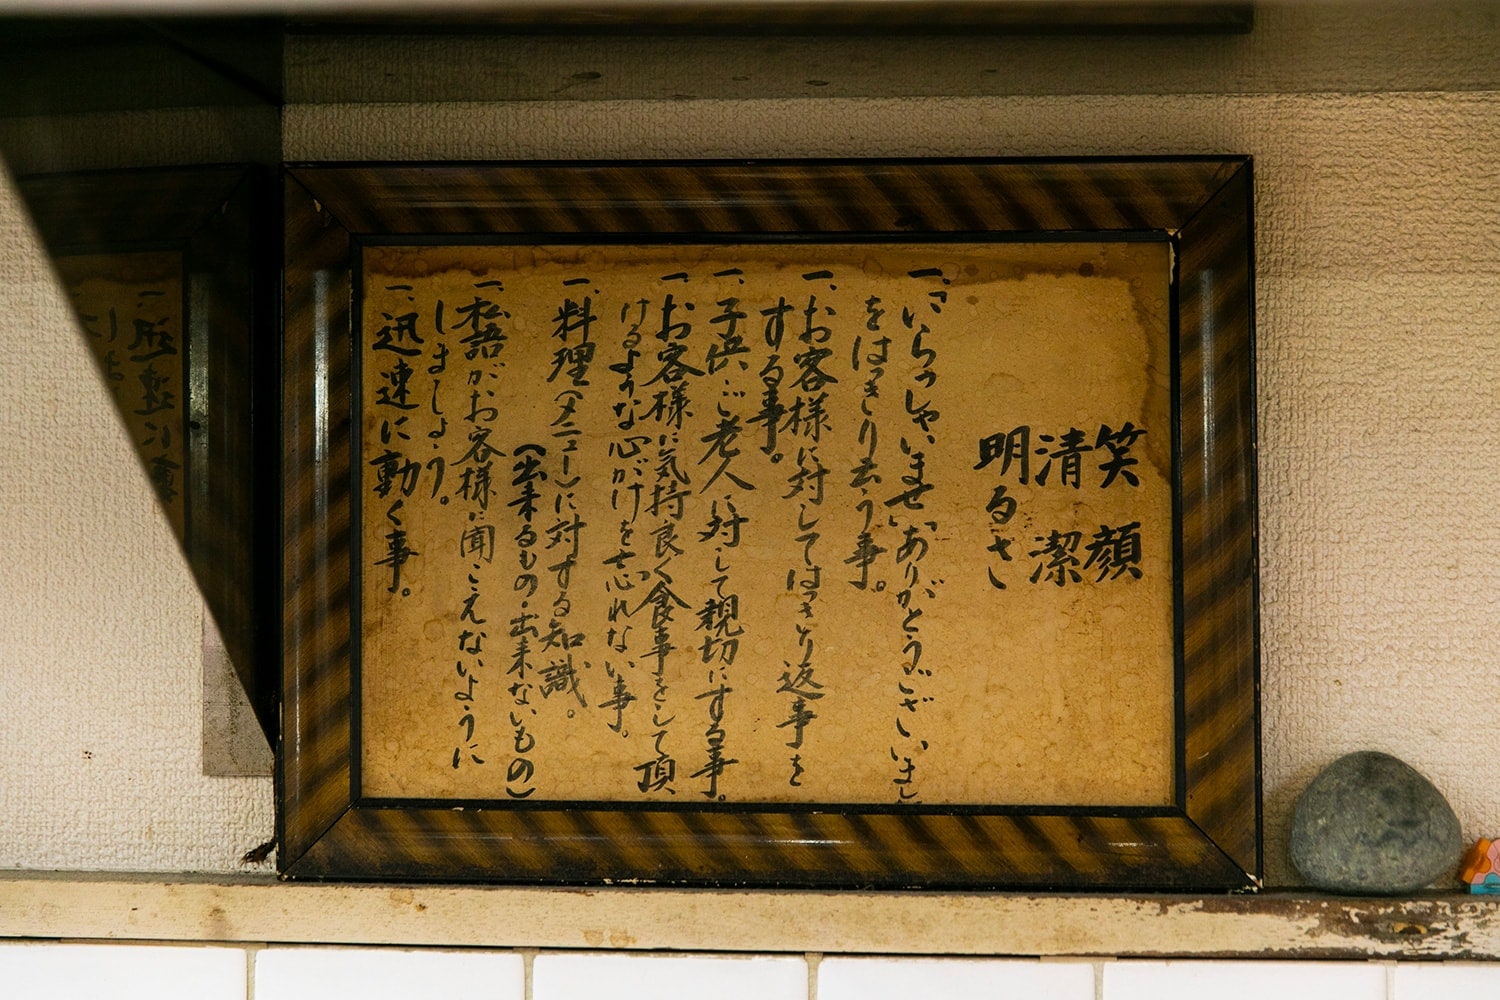 笑顔
清潔
明るさ
一、「いらっしゃいませ」「ありがとうございまし
をはっきり云う事。
一、お客様に対してはっきり返事を
する事。
一、子供、ご老人に対して親切にする事。
一、お客様に気持良く食事をして頂
けるような心がけを忘れない事。
一、料理(メニュー)に対する知識。
(出来るもの・出来ないもの)
一、私語がお客様に聞こえないように
しましょう。
一、迅速に動く事。